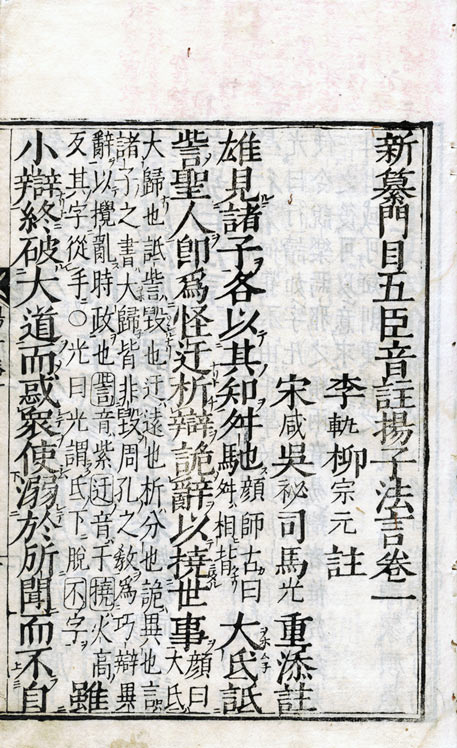 新纂門目五臣音註揚子法言卷一
李軌柳宗元註
宋咸吳祕司馬光重添註
雄見諸子各以其知舛馳顏師古曰舛相背大氐詆
訾聖人卽爲怪迂析辯詭辭以撓世事顏曰大氐
大歸也詆訾毀也迂遠也析分也詭異也言
諸子之書大歸皆非毀周孔之教爲巧辯異
辭以攪亂時政也訾音紫迂音于撓火高
反其字從手○光曰光謂氏下脫不字雖
小辯終破大道而惑衆使溺於所聞而不自